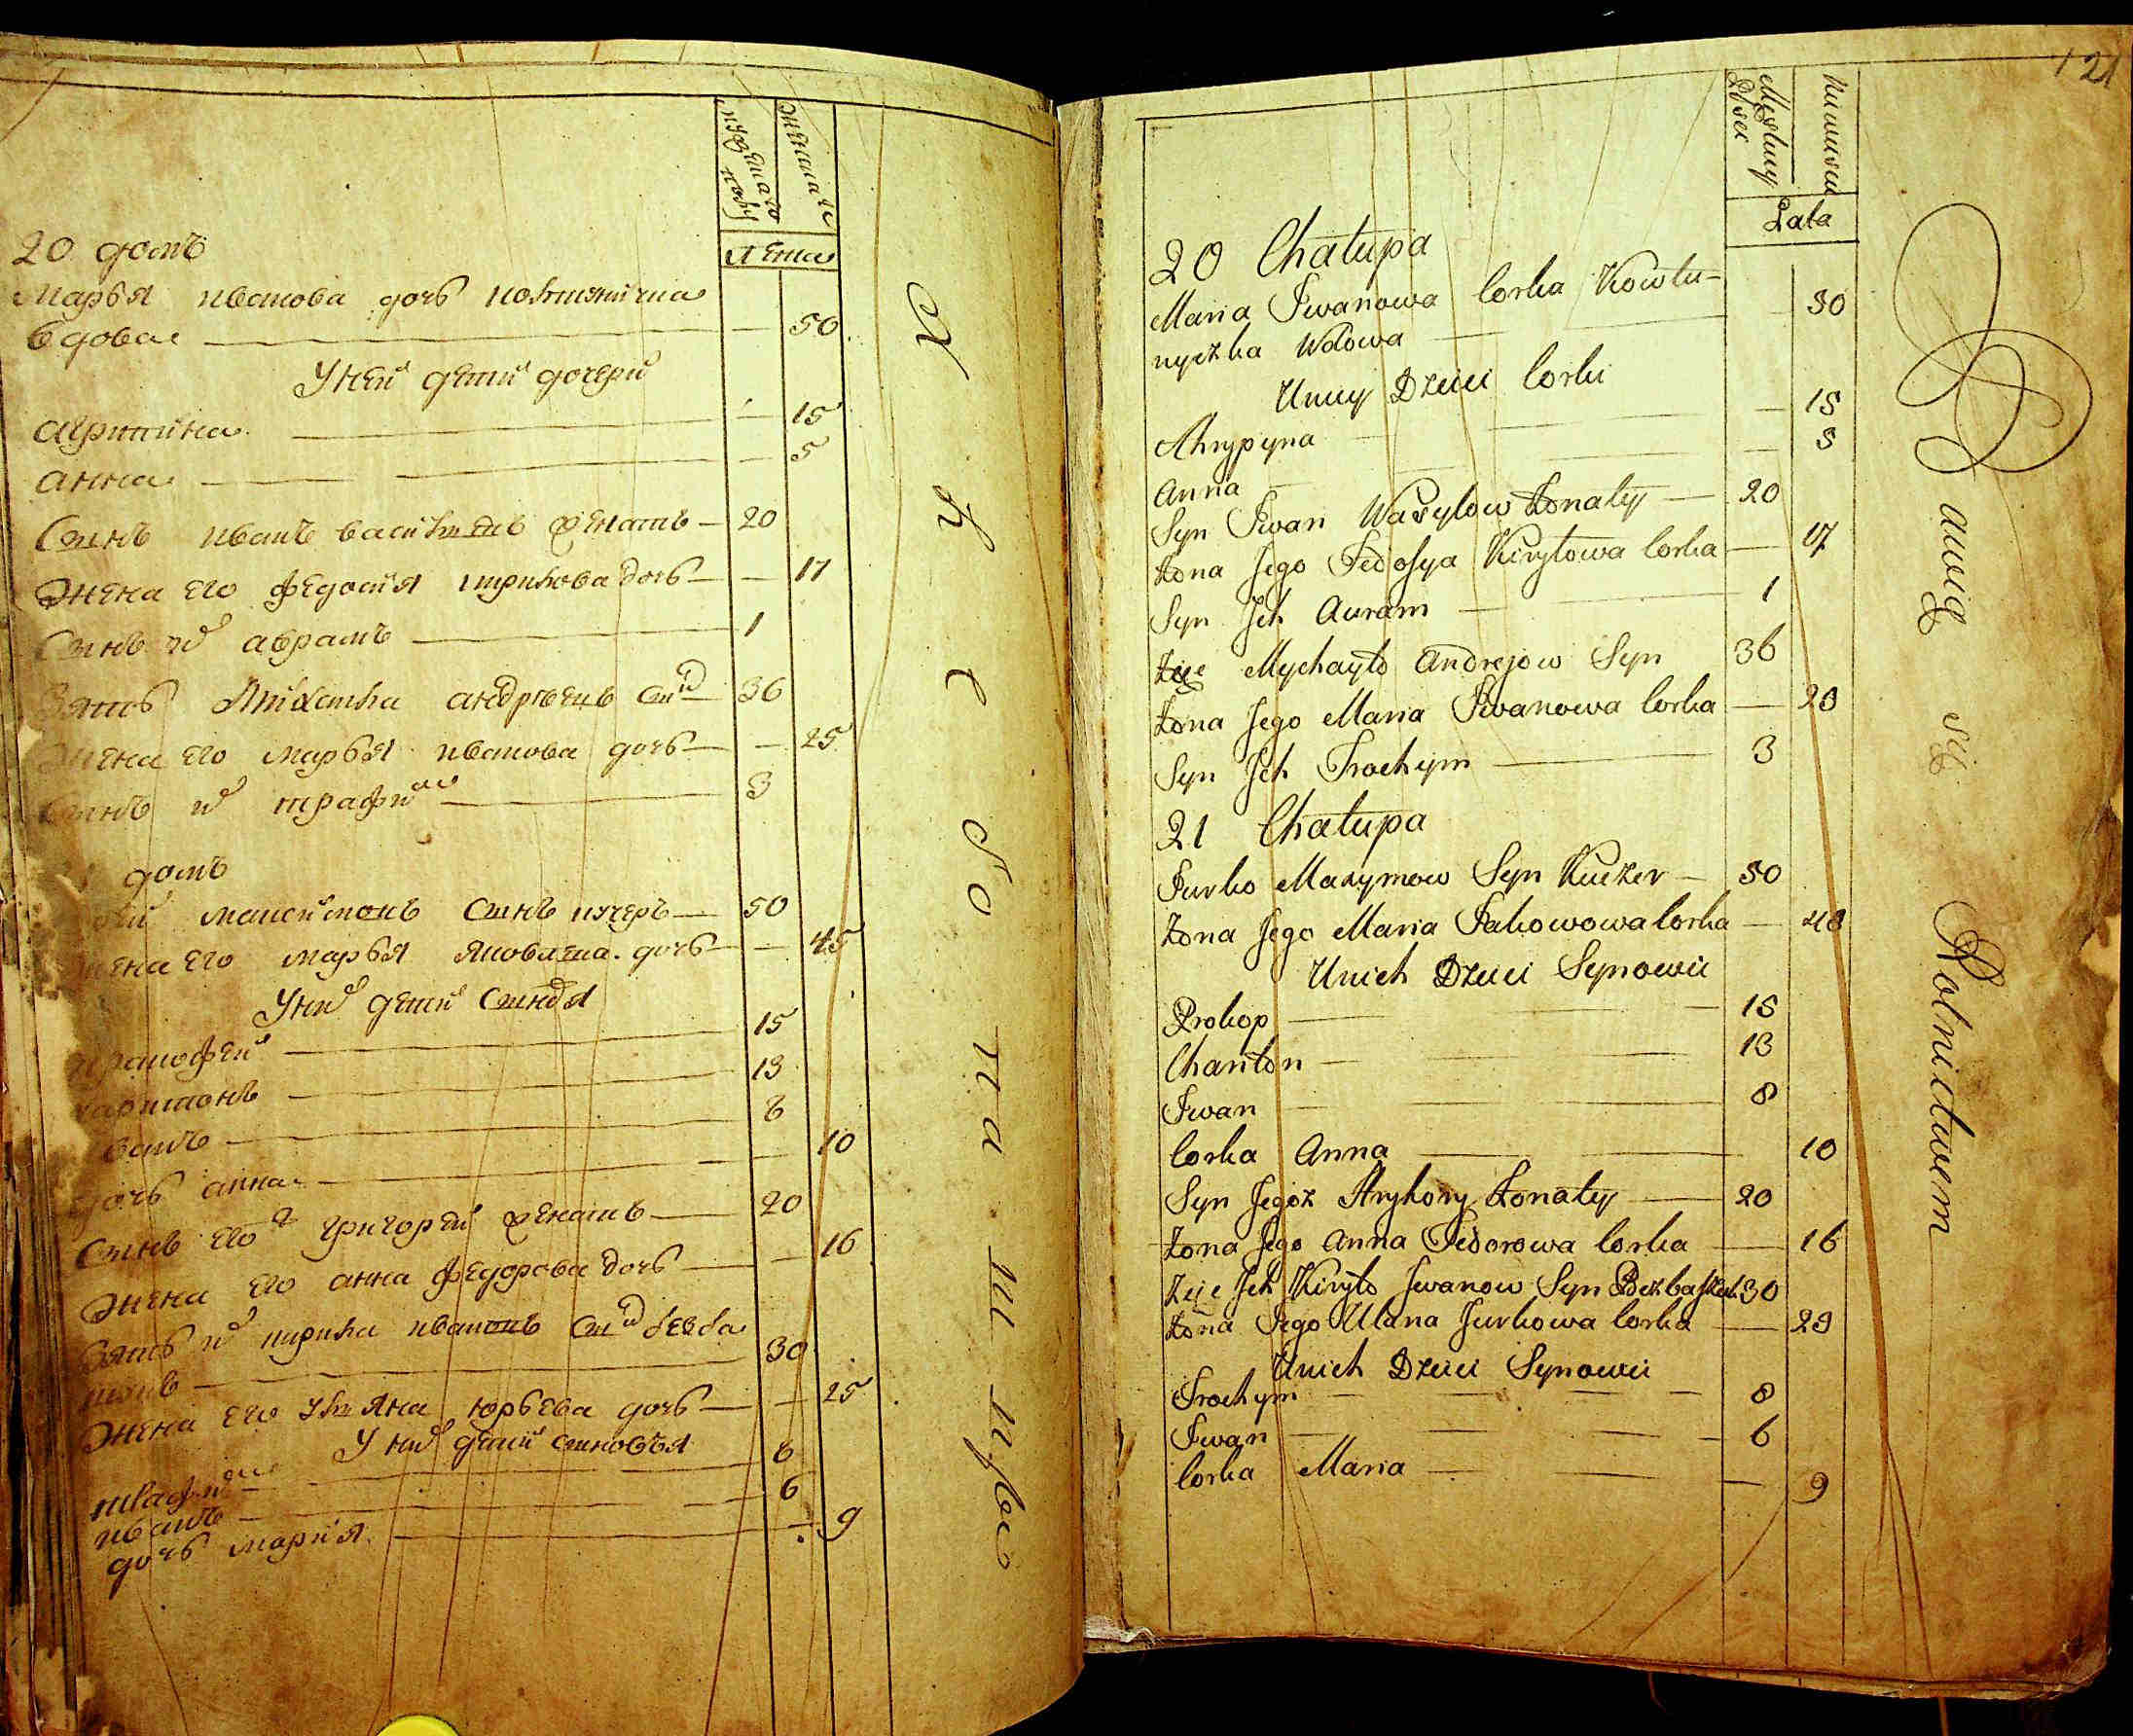 20 домъ
марья иванова дочь
вдова — 50
У ней дети дочери
агрипина — 15
анна — 5
Сынъ иванъ женатъ — 20
Жена его федосия кирилова дочь — 17
Сынъ их аврамъ — 1
Зять михаила андреевъ сын — 36
Жена его марья иванова дочь — 25
Сынъ их трафим — 3
домъ
Сынъ кучеръ — 50
жена его марья дочь — 45
У них дети
15
харитонъ — 13
иванъ — 8
дочь анна — 10
Сынъ его ж григорей женатъ — 20
Жена его анна федорова дочь — 16
Зять их кирила ивановъ сын
30
Жена его ульяна юрьева дочь — 25
У них дети сыновья
8
иванъ — 6
дочь мария — 9
лета
121
Męskiey Płci
Lata
20 Chałupa
Maria Iwanowa Corka Kowtu-
nyczka Wdowa — 50
Uniey Dzieci Corki
Ahrypyna — 15
Anna — 5
Syn Iwan Wasylow Żonaty — 20
Żona Jego Fedosya Kiryłowa Corka — 17
Syn Ich Auram — 1
Zięć Mychayło Andrejow Syn 36
Żona Jego Maria Iwanowa Corka — 25
Syn Ich Trochym — 3
21 Chałupa
Jurko Maxymow Syn Kuczer — 50
Żona Jego Maria Jakowowa Corka — 45
Unich Dzieci Synowie
Prokop — 15
Chariton — 13
Iwan — 8
Corka Anna — 10
Syn Jegoż Hryhory Żonaty — 20
Żona Jego Anna Fedorowa Corka — 16
Zięć Ich Kiryło Iwanow Syn 30
Żona Jego Ulana Jurkowa Corka — 25
Unich Dzieci Synowie
Trochym — 8
Iwan — 6
Corka Maria — 9
Bawią się Rolnictwem